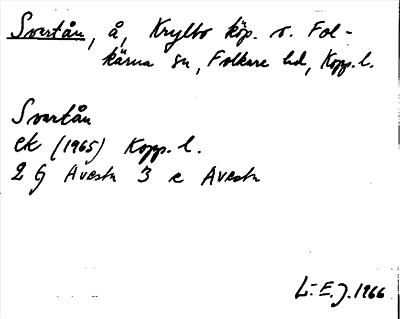 Svartån, å, Krylbo köp. o. Fol-
kärna sn, Folkare hd, Kopp. l.
Svartån
ek (1965) Kopp. l.
2 G Avesta 3 e Avesta
L-E. J. 1966